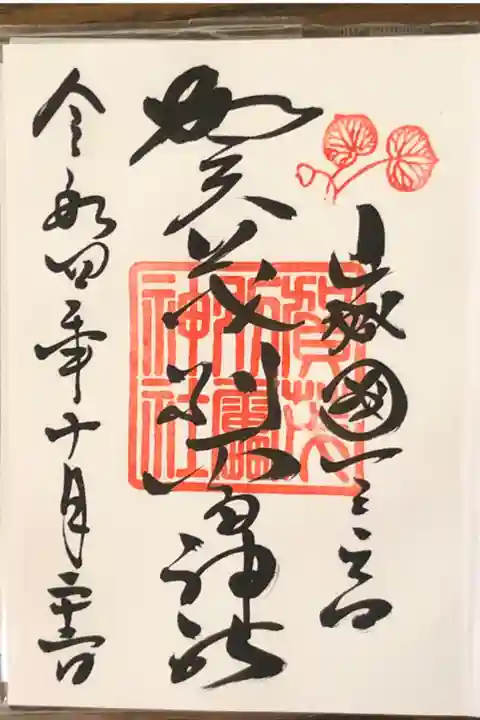 山城國一之宮
賀茂別雷神社
令和四年十月
賀茂
別雷
神社